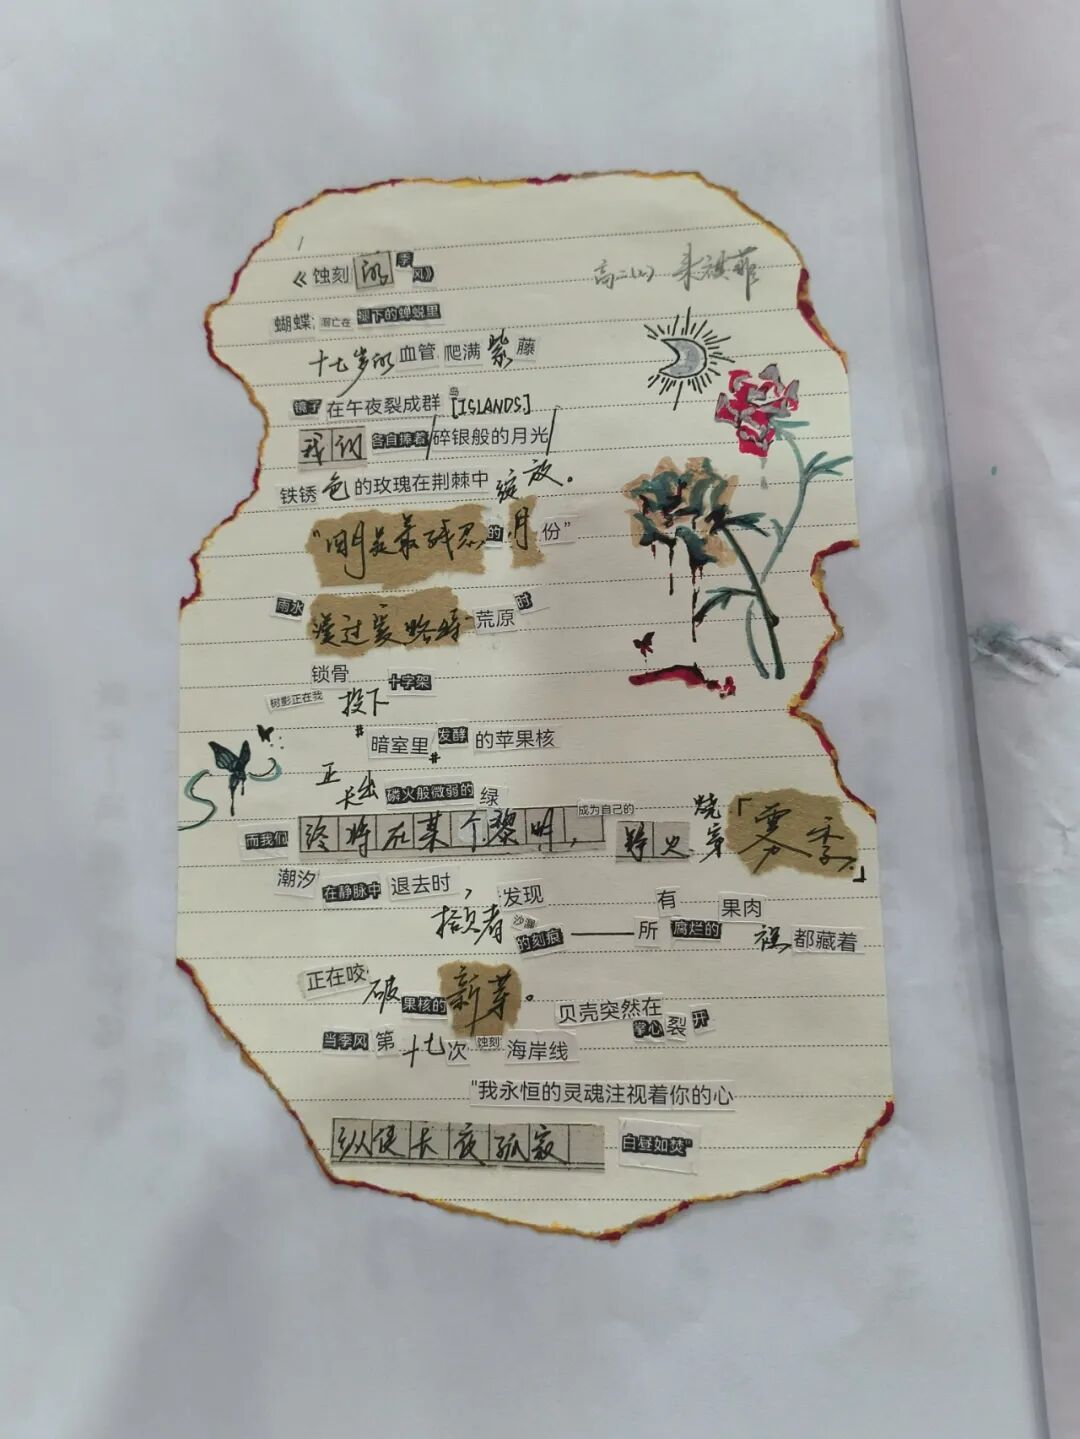 《蚀刻的季风》
高二 朱祺菲
蝴蝶溺亡在褪下的蝉蜕里
十七岁的血管爬满紫藤
镜子在午夜裂成群岛[ISLANDS]
我们各自捧着碎银般的月光
铁锈色的玫瑰在荆棘中绽放。
“四月是最残忍的月份”
雨水漫过艾略特荒原时
锁骨
树影正在我投下十字架
#暗室里发酵#的苹果核
正长出磷火般微弱的绿
而我们终将在某个黎明，成为自己的野火烧穿「雾季」
潮汐在静脉中退去时，发现有果肉
拾贝者沙漏的刻痕——所腐烂的都藏着
正在咬破果核的新芽。
贝壳突然在掌心裂开
当季风第十七次蚀刻海岸线
"我永恒的灵魂注视着你的心
纵使长夜孤寂白昼如焚"